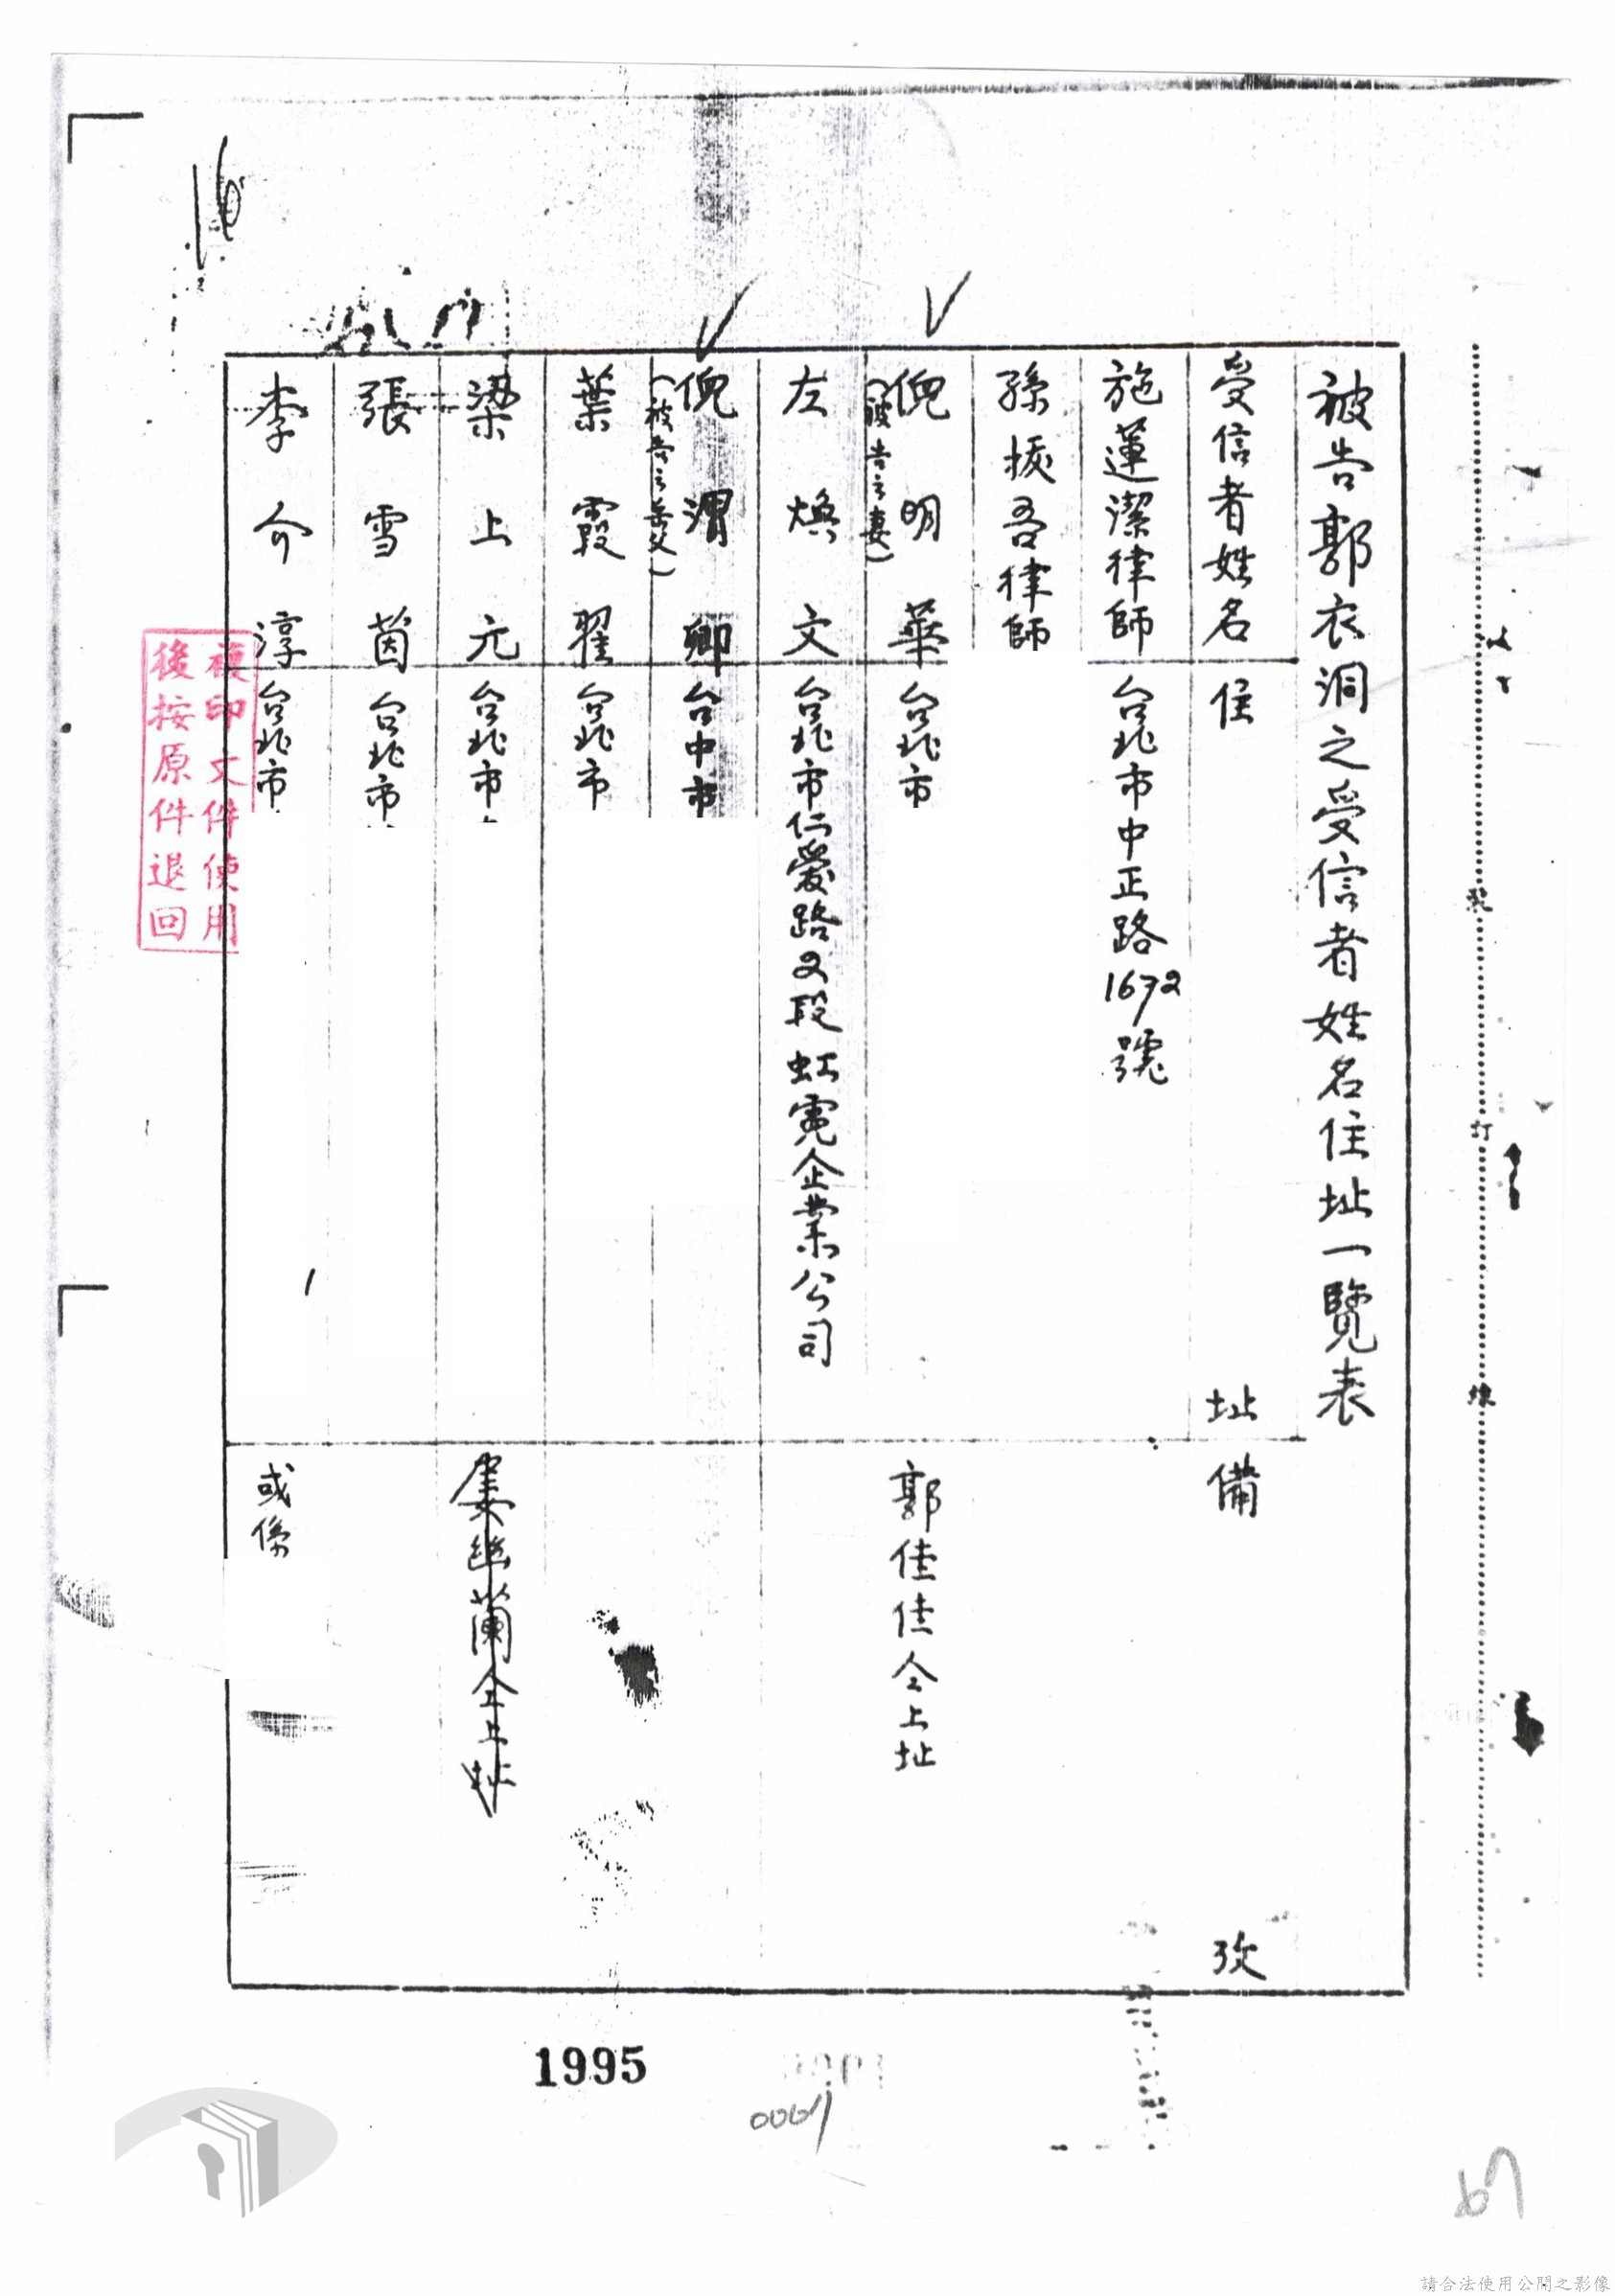 被告郭衣洞之受信者姓名住址一覽表
受信者姓名 住址 備攷
施蓮潔律師 台北市中正路1672號
孫振吾律師
倪明華 台北市 郭佳佳仝上址
(被告之妻)
左煥文 台北市仁愛路2段虹霓企業公司
倪渭卿 台中市
(被告之岳父)
葉霞翟 台北市
梁上元 台北市 婁幽蘭仝上址
張雪茵 台北市
李介淳 台北市 或係
複印文件使用
後按原件退回
裝 訂 線
1995
0061
67
請合法使用公開之影像